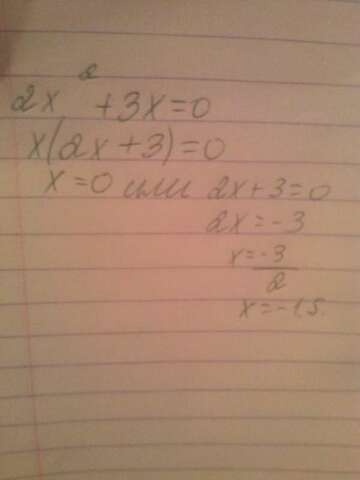 2x² + 3x = 0
x(2x + 3) = 0
x = 0 или 2x + 3 = 0
2x = -3
x = -3/2
x = -1.5.